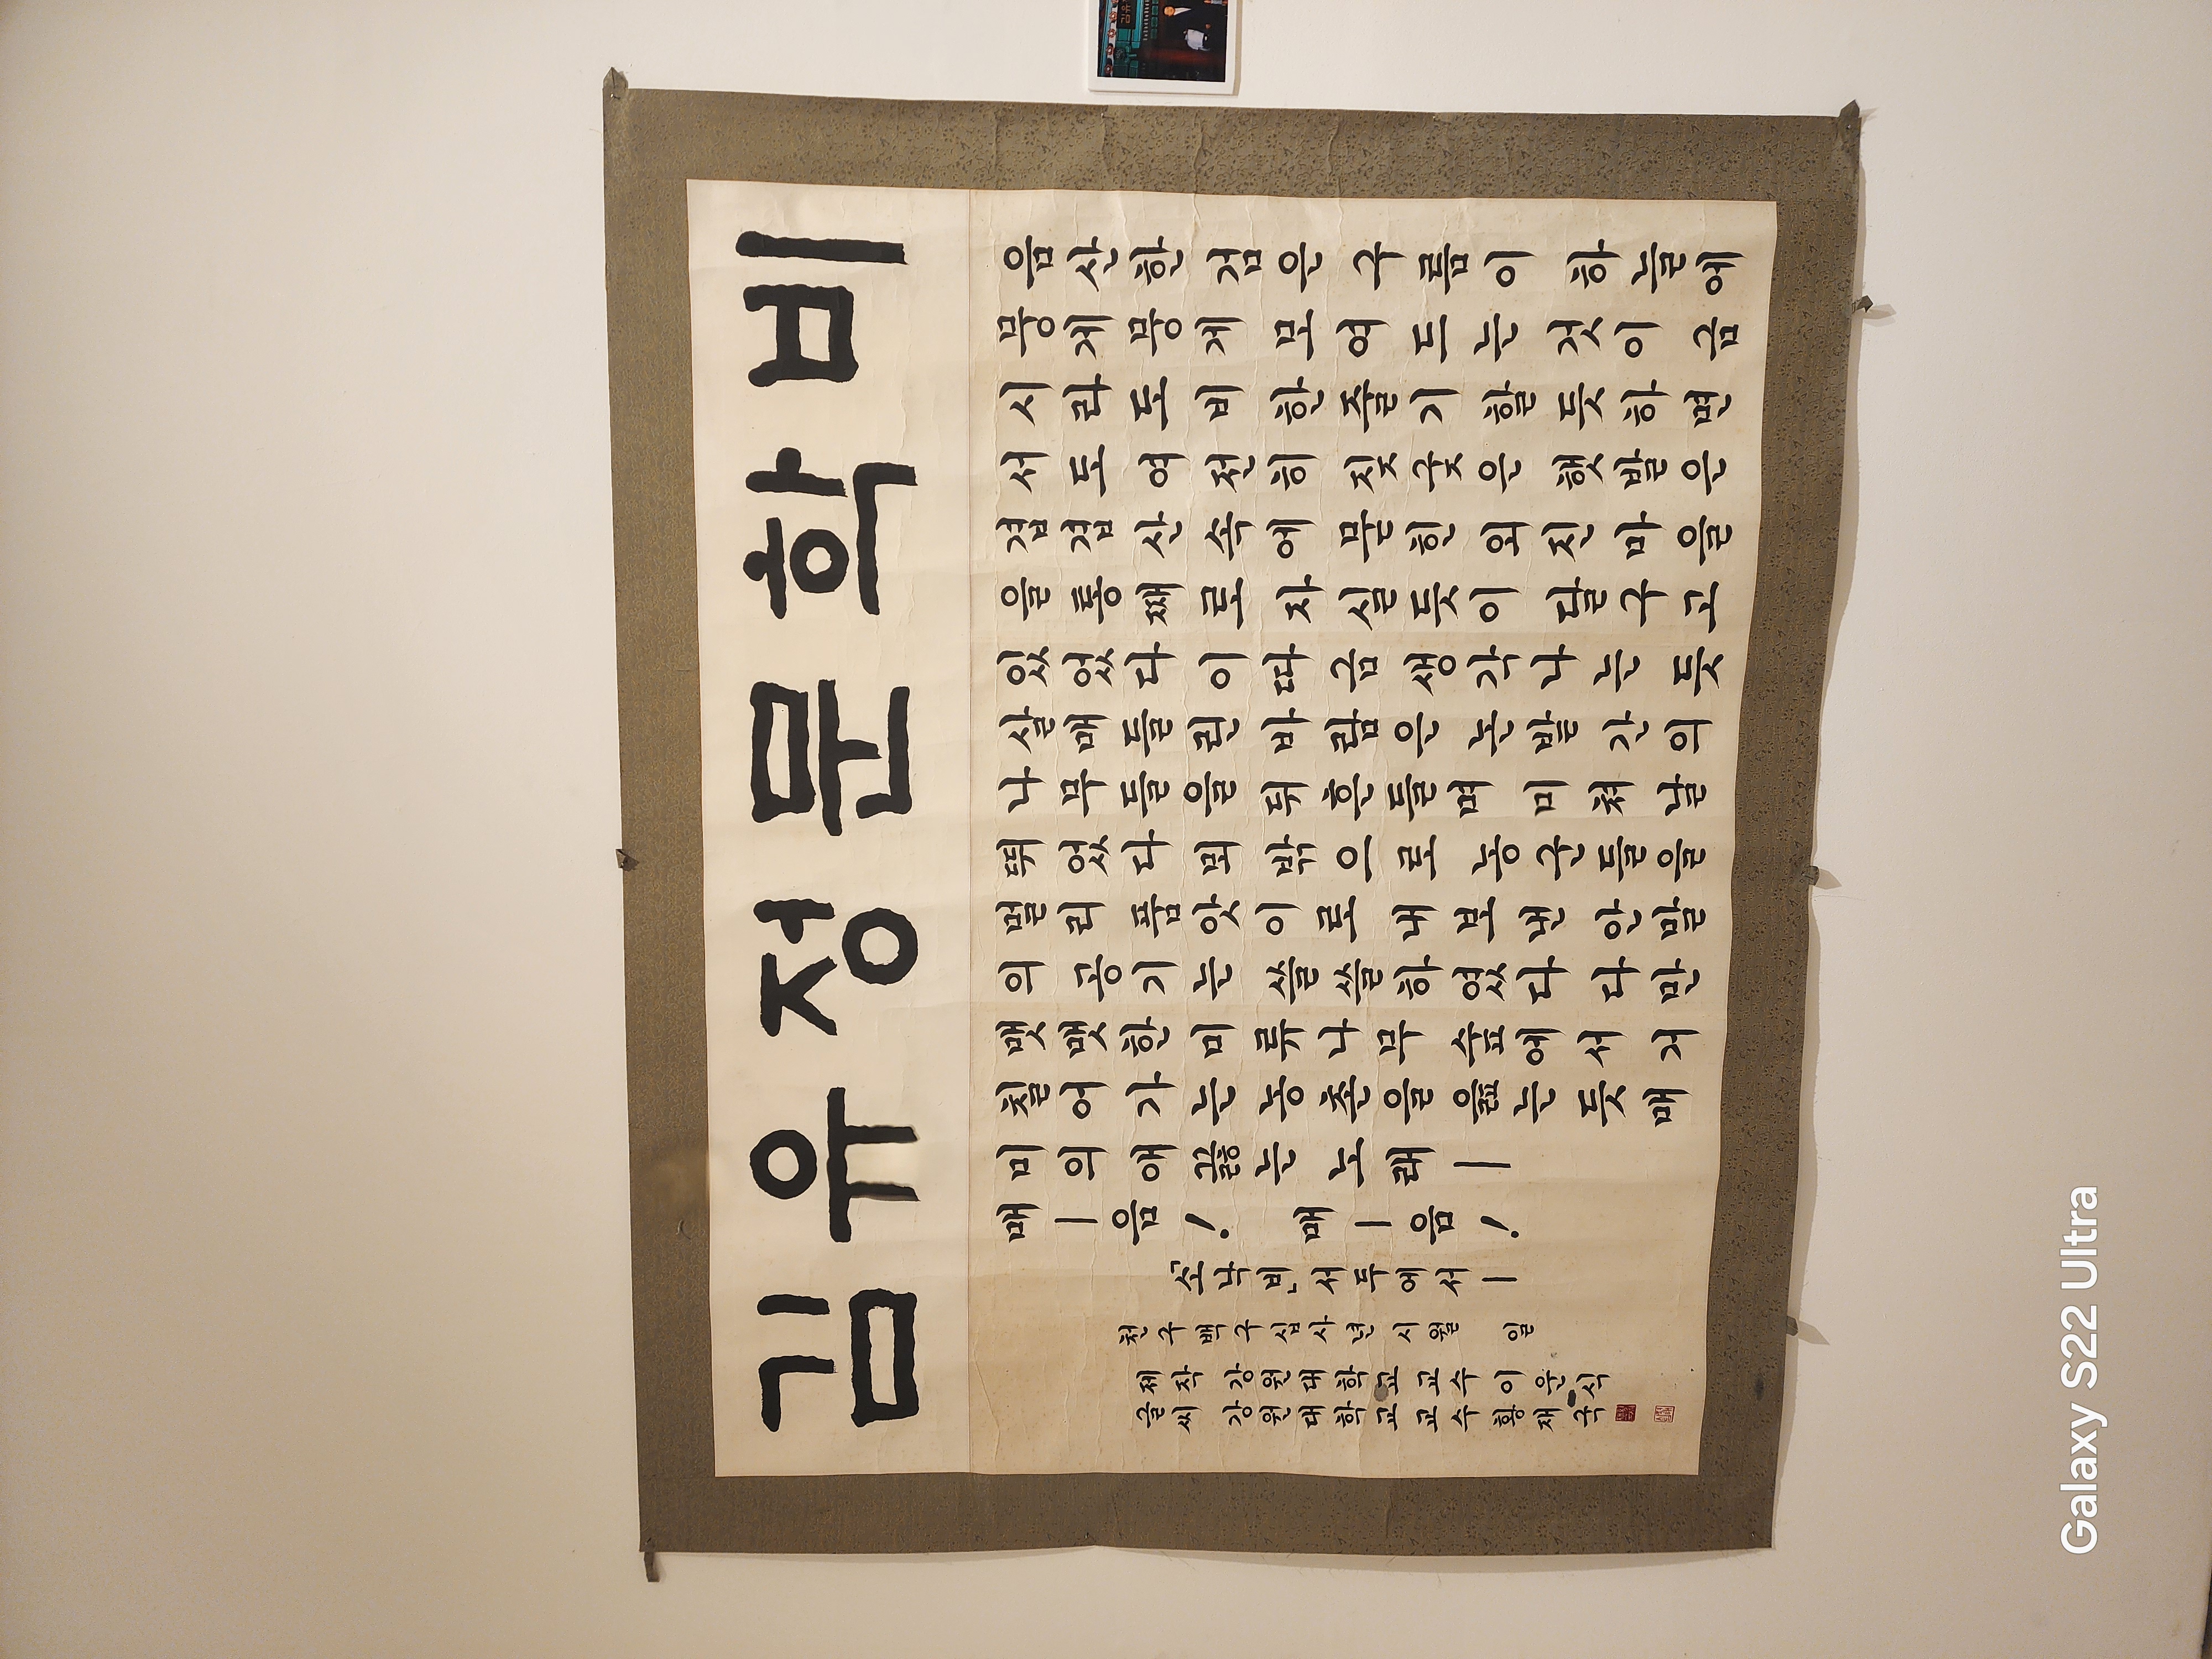 김유정문학비
음산한 검은 구름이 하늘에
뭉게뭉게 모여드는 것이 금
시라도 비 한줄기 할 듯하면
서도 여전히 짓궂은 햇발은
겹겹 산속에 묻힌 외진 마을
을 통째로 자실 듯이 달구고
있었다 이따금 생각나는 듯
살매들린 바람은 논밭간의
나무들을 뒤흔들며 미쳐 날
뛰었다 뫼 밖으로 농군들을
멀리 품앗이로 내보낸 안말
의 공기는 쓸쓸하였다 다만
맷맷한 미류나무 숲에서 거
칠어가는 농촌을 읊는 듯 매
미의 애끓는 노래—
매—음! 매—음!
「소낙비」 서두에서—
천구백구십사년 시월 일
제작 강원대학교 교수 이운식
글씨 강원대학교 교수 황재국
Galaxy S22 Ultra